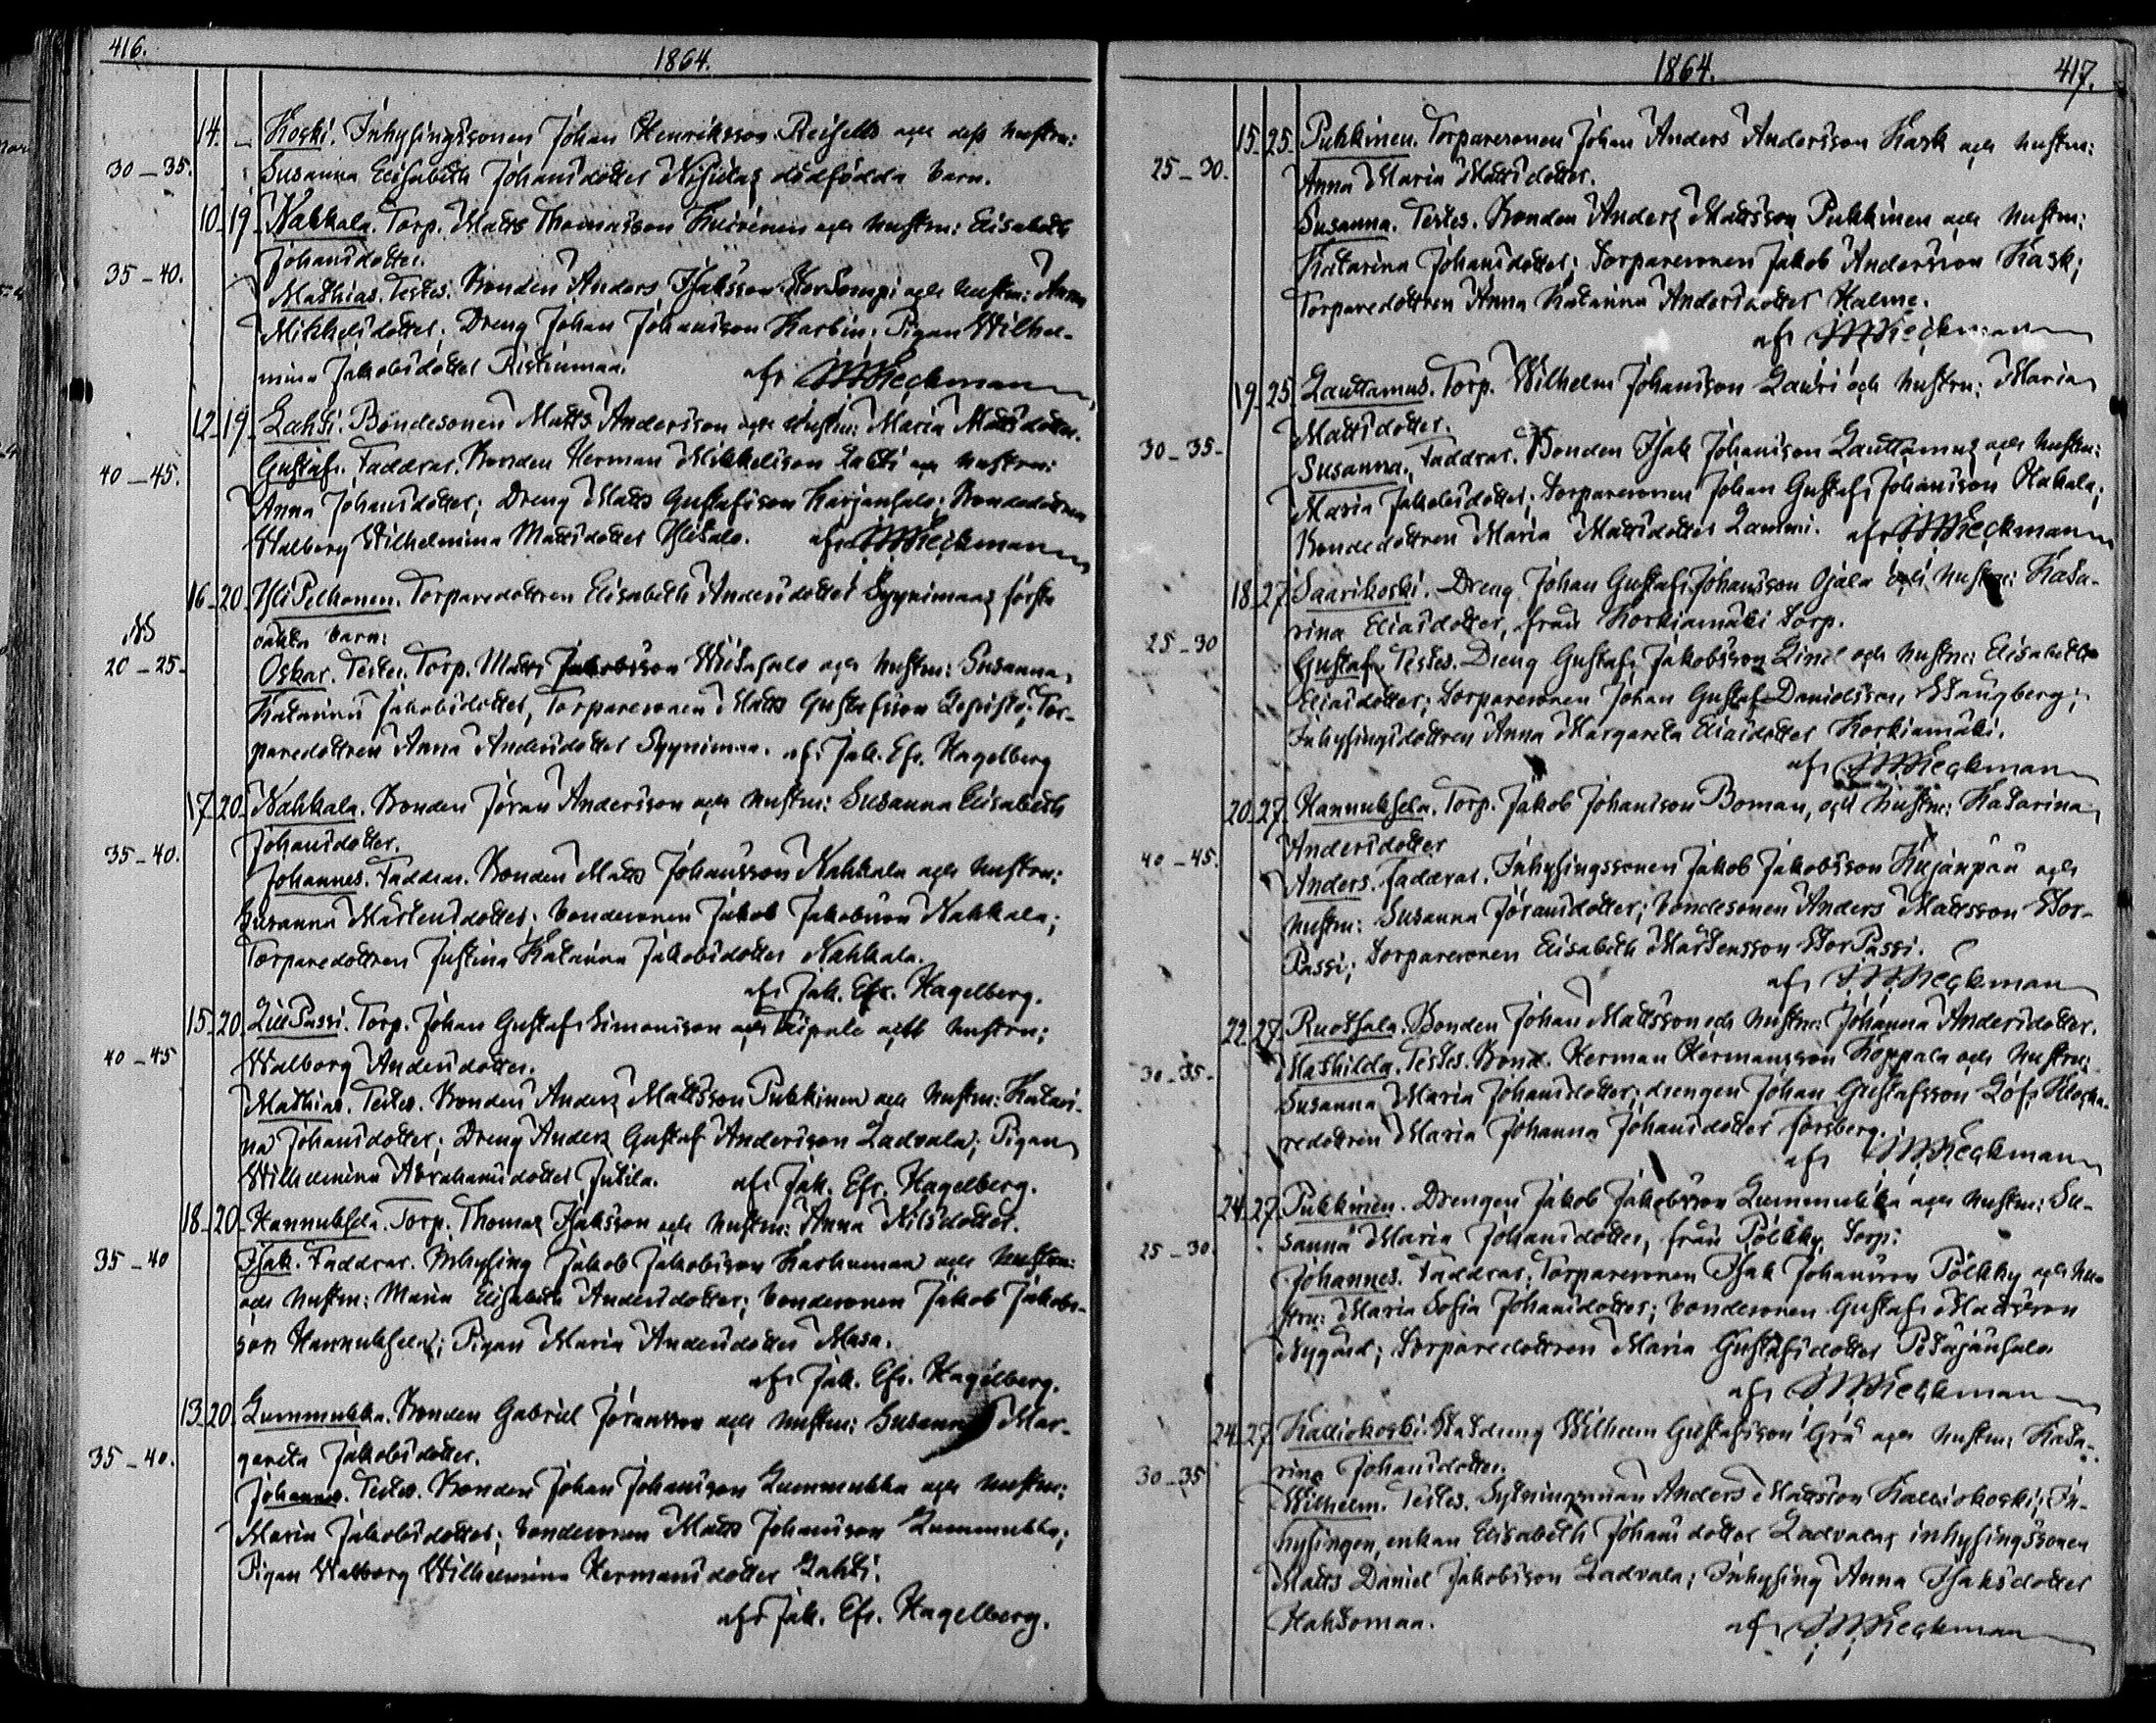 416.
1864.
14. — Koski. Inhysingssonen Johan Henriksson Reisells och dess hustru:
30—35. Susanna Elisabeth Johansdotter dödfödda barn.
10. 19. Nahkala. Torp. Matts Thomasson och hustru: Elisabeth
Johansdotter.
35—40. Mathias. Testes. Bonden Anders Isaksson StorSompi och hustru: Anna
Mikkelsdotter; Dreng Johan Johansson Karbin; Pigan Wilhel-
mina Jakobsdotter Ristiinmaa. af
12. 19. Lahti. Bondesonen Matts Andersson och hustru: Maria Mattsdotter.
40—45. Gustaf. Faddrar. Bonden Herman Mikkelsson Lahti och hustru:
Anna Johansdotter; Dreng Matts Gustafsson Karjansalo; Bondedottren
Walborg Wilhelmina Mattsdotter YliSalo. af
16. 20. YliPelkonen. Torparedottren Elisabeth Andersdotter Syynimaas första
oäkta barn:
20—25. Oskar. Testes. Torp. Matts Jakobsson Wiitasalo och hustru: Susanna
Katarina Jakobsdotter, Torparesonen Matts Gustafsson Tor-
paredottren Anna Andersdotter Syynimaa. af Jak. Efr. Hagelberg
17. 20. Nahkala. Bonden Jöran Andersson och hustru: Susanna Elisabeth
Johansdotter.
35—40. Johannes. Faddrar. Bonden Matts Johansson Nahkala och hustru:
Susanna Mårtensdotter; bondesonen Jakob Jakobsson Nahkala;
Torparedottren Justina Katarina Jakobsdotter Nahkala.
af Jak. Efr. Hagelberg.
15. 20. LillPassi. Torp. Johan Gustaf Simonsson och hustru:
40—45 Walborg Andersdotter.
Mathias. Testes. Bonden Anders Mattsson Puhkinen och hustru: Katari-
na Johansdotter; Dreng Anders Gustaf Andersson Ladvala; Pigan
Wilhelmina Abrahamsdotter Jutila. af Jak. Efr. Hagelberg.
18. 20. Hannuksela. Torp. Thomas Isaksson och hustru: Anna Nilsdotter.
35—40 Isak. Faddrar. Inhysing Jakob Jakobsson Karhumaa och hustru:
och hustru: Maria Elisabeth Andersdotter; bondesonen Jakob Jakobs-
son Hannuksela; Pigan Maria Andersdotter Masa.
af Jak. Efr. Hagelberg.
13. 20. Lummukka. Bonden Gabriel Jöransson och hustru: Susanna Mar-
gareta Jakobsdotter.
35—40. Johannes. Testes. Bonden Johan Johansson Lummukka och hustru:
Maria Jakobsdotter; bondesonen Matts Johansson Lummukka;
Pigan Walborg Wilhelmina Hermansdotter Lahti.
af Jak. Efr. Hagelberg.
1864.
417.
15. 25. Puhkinen. Torparesonen Johan Anders Andersson Kask och hustru:
25—30. Anna Maria Mattsdotter.
Susanna. Testes. Bonden Anders Mattsson Puhkinen och hustru:
Katarina Johansdotter; Torparesonen Jakob Andersson Kask;
Torparedottren Anna Katarina Andersdotter Halme.
af
19. 25. Lauttamus. Torp. Wilhelm Johansson Lauri och hustru: Maria
Mattsdotter.
30—35. Susanna. Faddrar. Bonden Isak Johansson Lauttamus och hustru:
Maria Jakobsdotter; torparesonen Johan Gustaf Johansson Hakala;
Bondedottren Maria Mattsdotter Lammi. af
18. 27. Saarikoski. Dreng Johan Gustaf Johansson Ojala och hustru: Kata-
rina Eliasdotter, från Korkiamäki torp.
25—30 Gustaf. Testes. Dreng Gustaf Jakobsson Lind och hustru: Elisabeth
Eliasdotter; torparesonen Johan Gustaf Danielsson Stångberg;
Inhysingsdottren Anna Margareta Eliasdotter Korkiamäki.
af
20. 27. Hannuksela. Torp. Jakob Johansson Boman, och hustru: Katarina
Andersdotter
40—45. Anders. Faddrar. Inhysingssonen Jakob Jakobsson Kujanpää och
hustru: Susanna Jöransdotter; bondesonen Anders Mattsson Stor-
Passi; torparesonen Elisabeth Mårtensson StorPassi.
af
22. 27. Ruotsala. Bonden Johan Mattsson och hustru: Johanna Andersdotter.
30—35. Mathilda. Testes. Bond. Herman Hermansson Koppala och hustru:
Susanna Maria Johansdotter; drengen Johan Gustafsson Löf; Klocka-
redottren Maria Johanna Johansdotter Forsberg.
af
24. 27. Puhkinen. Drengen Jakob Jakobsson Lummukka och hustru: Su-
sanna Maria Johansdotter, från Pölkky torp:
25—30. Johannes. Faddrar. Torparesonen Isak Johansson Pölkky och hu-
stru: Maria Sofia Johansdotter; bondesonen Gustaf Mattsson
Nygård; torparedottren Maria Gustafsdotter Petäjänsalo
af
24. 27. Kalliokoski. Statdreng Wilhelm Gustafsson Grå och hustru: Kata-
rina Johansdotter.
30—35 Wilhelm. Testes. Sytningsman Anders Mattsson Kalliokoski; In-
hysingen, enkan Elisabeth Johansdotter Ladvala; inhysingssonen
Matts Daniel Jakobsson Ladvala; Inhysing Anna Isaksdotter
Hahtomaa. af